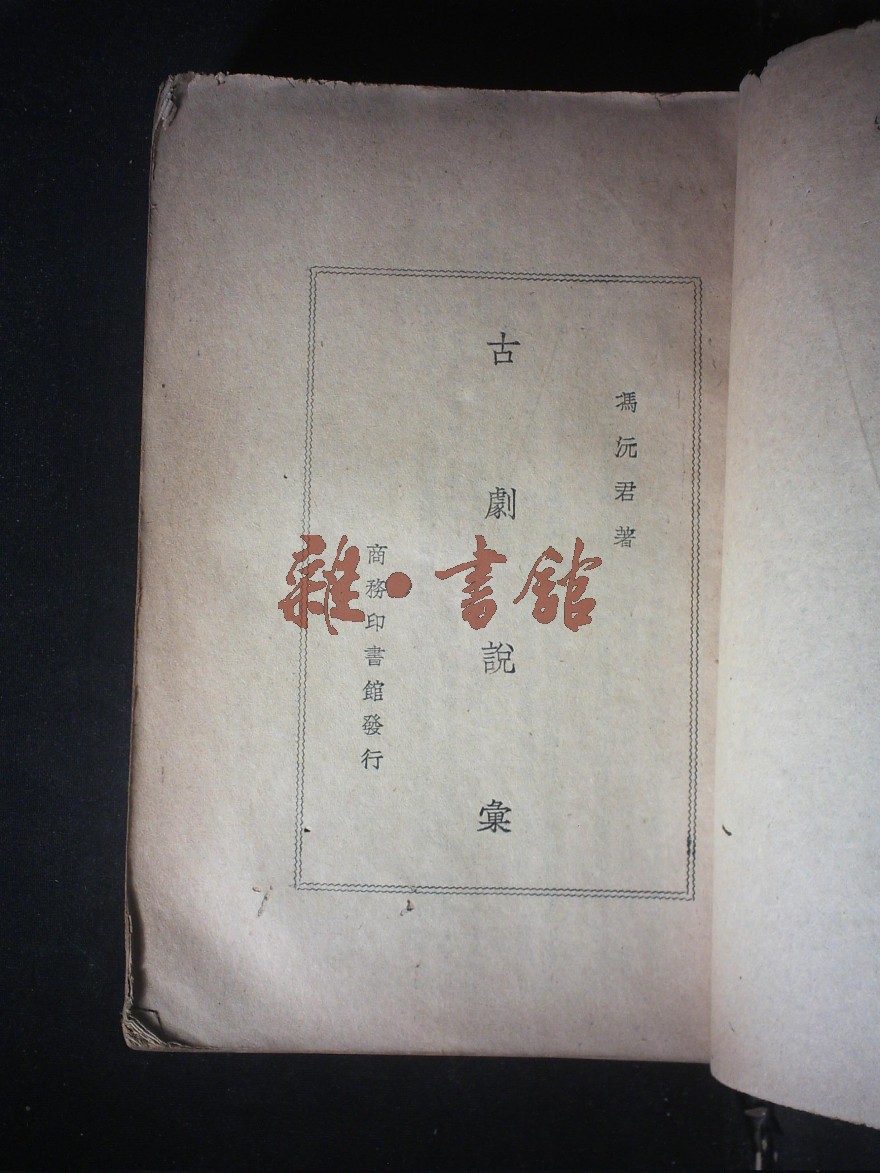 馮沅君著
古劇說彙
商務印書館發行
雜·書館